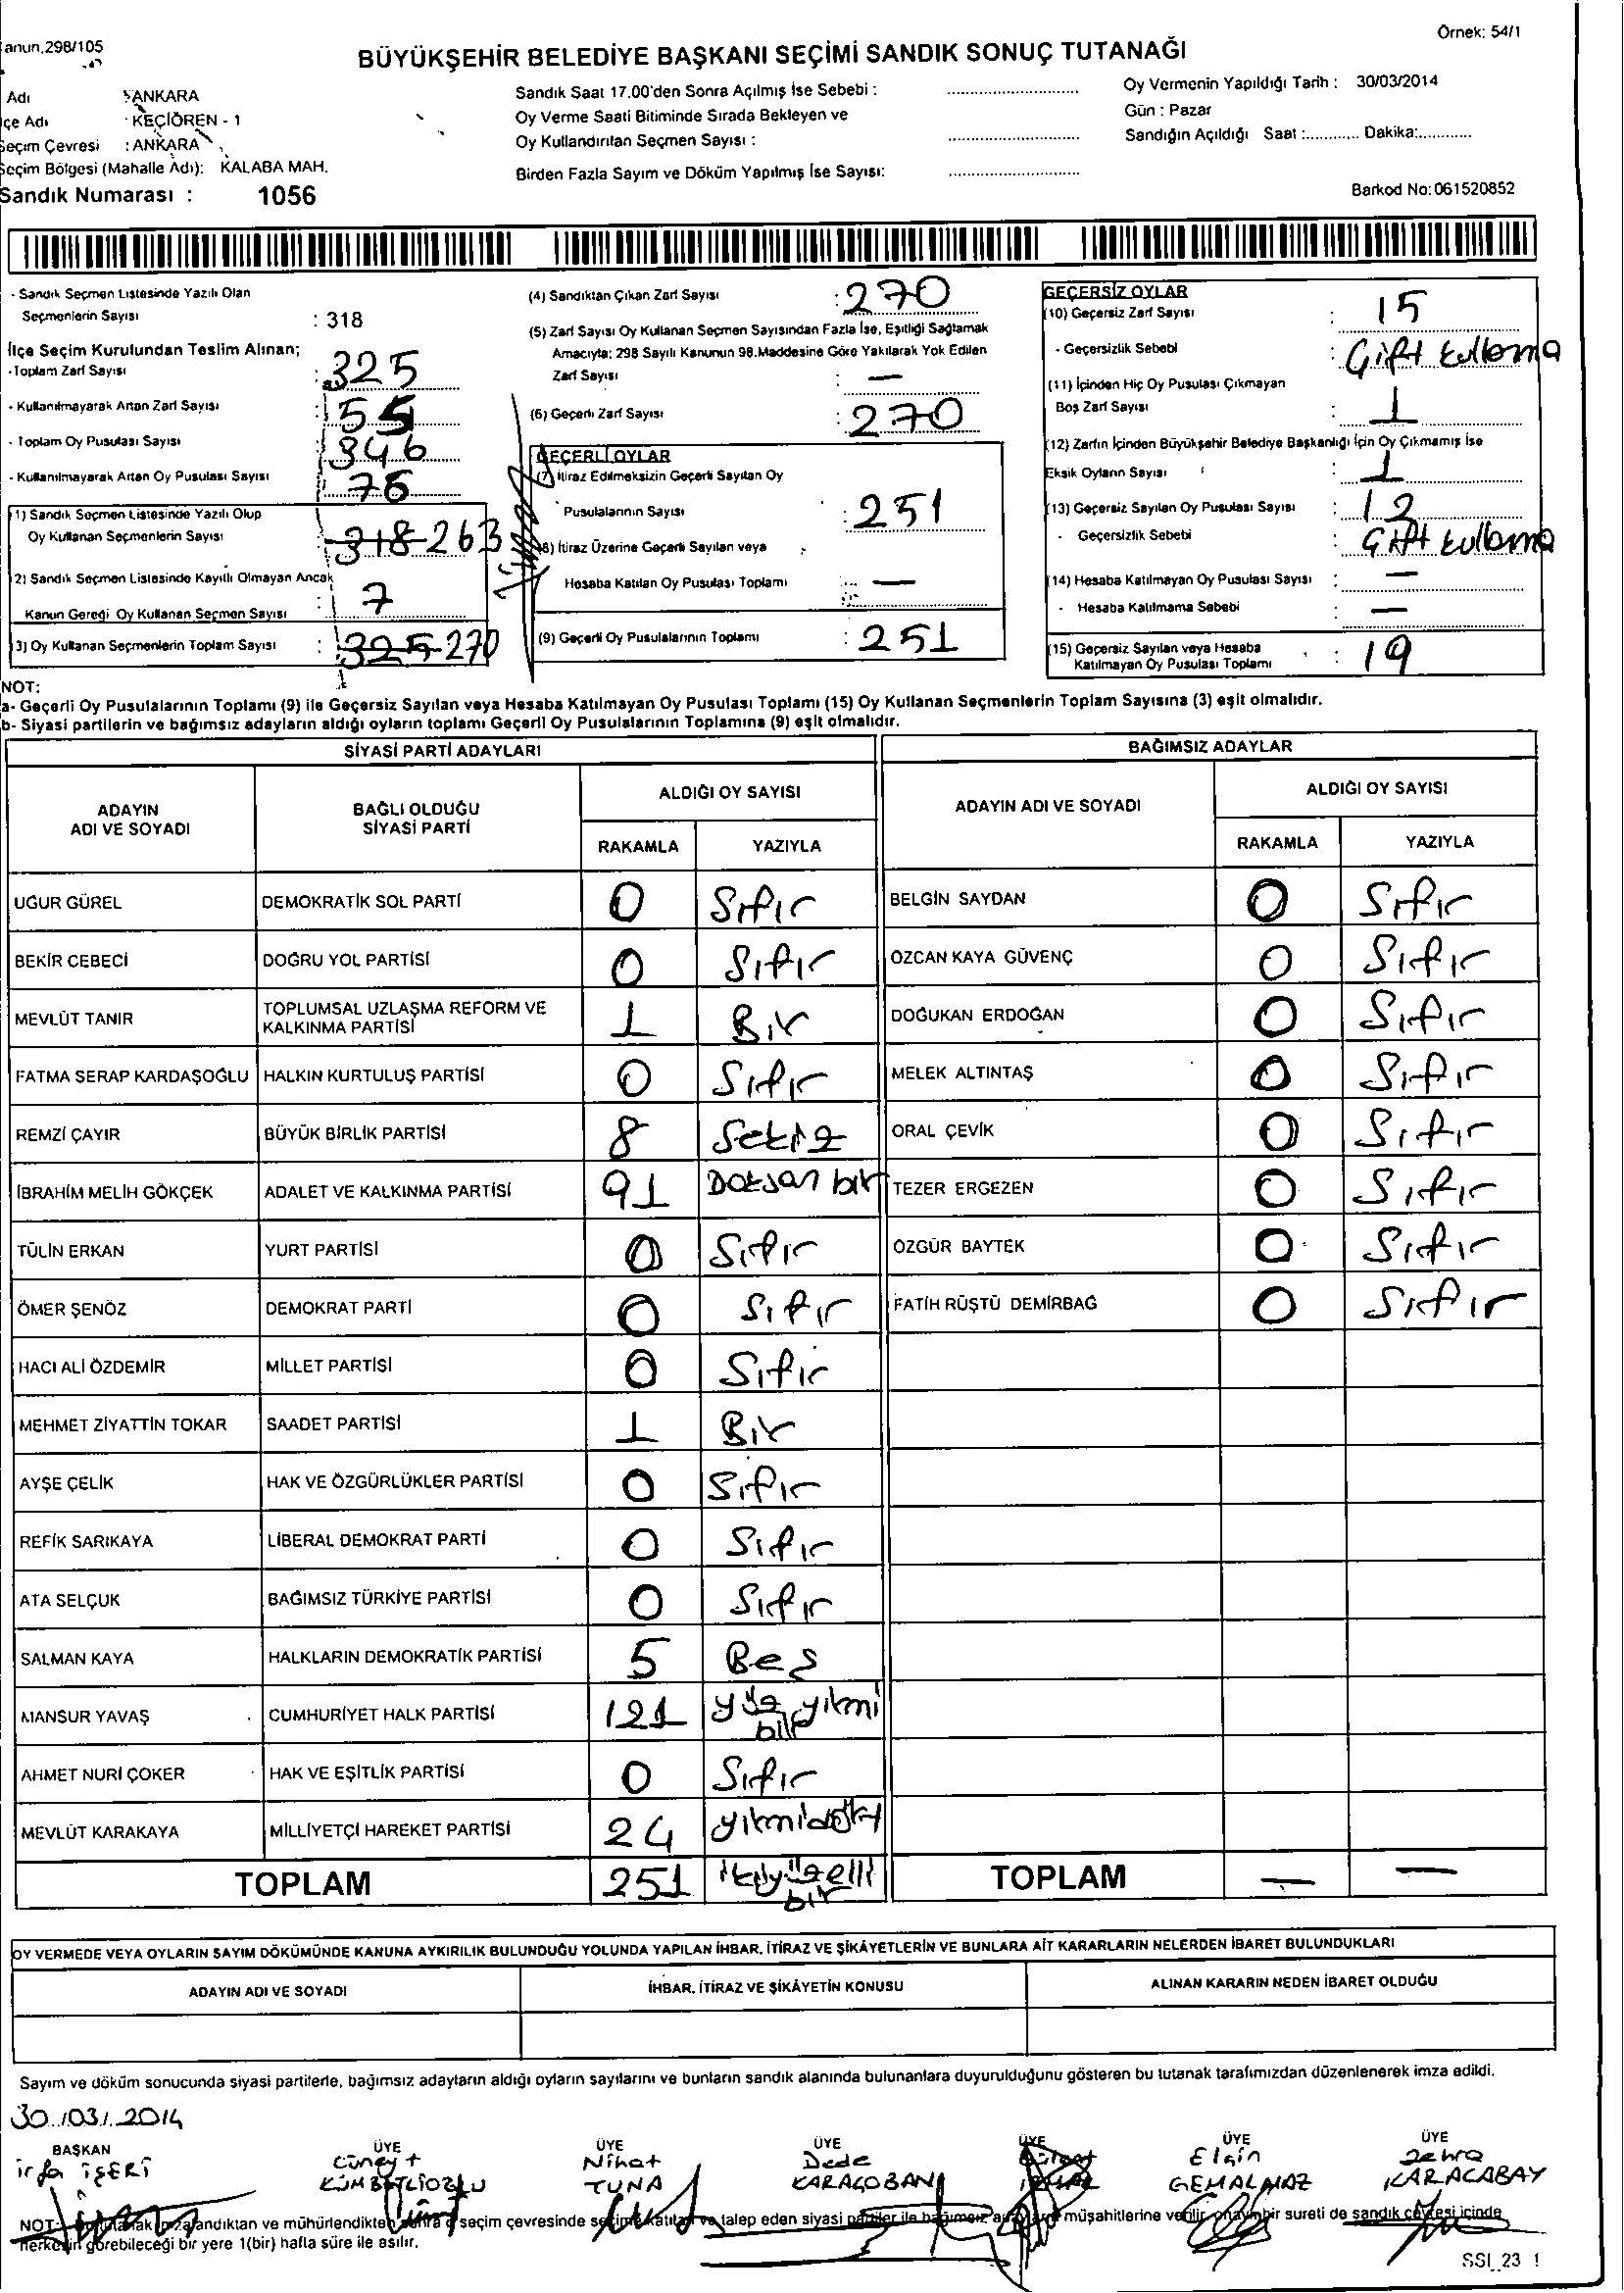 Örnek: 54/1
anun,298/105
BÜYÜKŞEHİR BELEDİYE BAŞKANI SEÇİMİ SANDIK SONUÇ TUTANAĞI
Adı : ANKARA
çe Adı : KEÇİÖREN - 1
Seçim Çevresi : ANKARA
Seçim Bölgesi (Mahalle Adı): KALABA MAH.
Sandık Numarası : 1056
Sandık Saat 17.00'den Sonra Açılmış İse Sebebi :
Oy Verme Saati Bitiminde Sırada Bekleyen ve
Oy Kullandırılan Seçmen Sayısı :
Birden Fazla Sayım ve Döküm Yapılmış İse Sayısı:
Oy Vermenin Yapıldığı Tarih : 30/03/2014
Gün : Pazar
Sandığın Açıldığı Saat :............ Dakika:............
Barkod No: 061520852
- Sandık Seçmen Listesinde Yazılı Olan
Seçmenlerin Sayısı : 318
İlçe Seçim Kurulundan Teslim Alınan;
-Toplam Zarf Sayısı : 325
- Kullanılmayarak Artan Zarf Sayısı : 55
- Toplam Oy Pusulası Sayısı : 346
- Kullanılmayarak Artan Oy Pusulası Sayısı : 76
1) Sandık Seçmen Listesinde Yazılı Olup
Oy Kullanan Seçmenlerin Sayısı : 318 263
2) Sandık Seçmen Listesinde Kayıtlı Olmayan Ancak
Kanun Gereği Oy Kullanan Seçmen Sayısı : 7
3) Oy Kullanan Seçmenlerin Toplam Sayısı : 325 270
(4) Sandıktan Çıkan Zarf Sayısı : 270
(5) Zarf Sayısı Oy Kullanan Seçmen Sayısından Fazla İse, Eşitliği Sağlamak
Amacıyla; 298 Sayılı Kanunun 98.Maddesine Göre Yakılarak Yok Edilen
Zarf Sayısı : —
(6) Geçerli Zarf Sayısı : 270
GEÇERLİ OYLAR
(7) İtiraz Edilmeksizin Geçerli Sayılan Oy
Pusulalarının Sayısı : 251
(8) İtiraz Üzerine Geçerli Sayılan veya :
Hesaba Katılan Oy Pusulası Toplamı : —
(9) Geçerli Oy Pusulalarının Toplamı : 251
GEÇERSİZ OYLAR
(10) Geçersiz Zarf Sayısı : 15
- Geçersizlik Sebebi : Çift kullama
(11) İçinden Hiç Oy Pusulası Çıkmayan
Boş Zarf Sayısı : 1
(12) Zarfın İçinden Büyükşehir Belediye Başkanlığı İçin Oy Çıkmamış İse
Eksik Oyların Sayısı : 1
(13) Geçersiz Sayılan Oy Pusulası Sayısı : 12
- Geçersizlik Sebebi : Çift kullama
(14) Hesaba Katılmayan Oy Pusulası Sayısı : —
- Hesaba Katılmama Sebebi : —
(15) Geçersiz Sayılan veya Hesaba
Katılmayan Oy Pusulası Toplamı : 19
NOT:
a- Geçerli Oy Pusulalarının Toplamı (9) ile Geçersiz Sayılan veya Hesaba Katılmayan Oy Pusulası Toplamı (15) Oy Kullanan Seçmenlerin Toplam Sayısına (3) eşit olmalıdır.
b- Siyasi partilerin ve bağımsız adayların aldığı oyların toplamı Geçerli Oy Pusulalarının Toplamına (9) eşit olmalıdır.
SİYASİ PARTİ ADAYLARI BAĞIMSIZ ADAYLAR
ADAYIN ADI VE SOYADI BAĞLI OLDUĞU SİYASİ PARTİ ALDIĞI OY SAYISI ADAYIN ADI VE SOYADI ALDIĞI OY SAYISI
RAKAMLA YAZIYLA RAKAMLA YAZIYLA
UĞUR GÜREL DEMOKRATİK SOL PARTİ 0 Sıfır BELGİN SAYDAN 0 Sıfır
BEKİR CEBECİ DOĞRU YOL PARTİSİ 0 Sıfır ÖZCAN KAYA GÜVENÇ 0 Sıfır
MEVLÜT TANIR TOPLUMSAL UZLAŞMA REFORM VE KALKINMA PARTİSİ 1 Bir DOĞUKAN ERDOĞAN 0 Sıfır
FATMA SERAP KARDAŞOĞLU HALKIN KURTULUŞ PARTİSİ 0 Sıfır MELEK ALTINTAŞ 0 Sıfır
REMZİ ÇAYIR BÜYÜK BİRLİK PARTİSİ 8 Sekiz ORAL ÇEVİK 0 Sıfır
İBRAHİM MELİH GÖKÇEK ADALET VE KALKINMA PARTİSİ 91 Doksan bir TEZER ERGEZEN 0 Sıfır
TÜLİN ERKAN YURT PARTİSİ 0 Sıfır ÖZGÜR BAYTEK 0 Sıfır
ÖMER ŞENÖZ DEMOKRAT PARTİ 0 Sıfır FATİH RÜŞTÜ DEMİRBAĞ 0 Sıfır
HACI ALİ ÖZDEMİR MİLLET PARTİSİ 0 Sıfır
MEHMET ZİYATTİN TOKAR SAADET PARTİSİ 1 Bir
AYŞE ÇELİK HAK VE ÖZGÜRLÜKLER PARTİSİ 0 Sıfır
REFİK SARIKAYA LİBERAL DEMOKRAT PARTİ 0 Sıfır
ATA SELÇUK BAĞIMSIZ TÜRKİYE PARTİSİ 0 Sıfır
SALMAN KAYA HALKLARIN DEMOKRATİK PARTİSİ 5 Beş
MANSUR YAVAŞ CUMHURİYET HALK PARTİSİ 121 yüz yikmi bir
AHMET NURİ ÇOKER HAK VE EŞİTLİK PARTİSİ 0 Sıfır
MEVLÜT KARAKAYA MİLLİYETÇİ HAREKET PARTİSİ 24 yikmidört
TOPLAM 251 ikiyüzelli bir TOPLAM — —
OY VERMEDE VEYA OYLARIN SAYIM DÖKÜMÜNDE KANUNA AYKIRILIK BULUNDUĞU YOLUNDA YAPILAN İHBAR, İTİRAZ VE ŞİKÂYETLERİN VE BUNLARA AİT KARARLARIN NELERDEN İBARET BULUNDUKLARI
ADAYIN ADI VE SOYADI İHBAR, İTİRAZ VE ŞİKÂYETİN KONUSU ALINAN KARARIN NEDEN İBARET OLDUĞU
Sayım ve döküm sonucunda siyasi partilerle, bağımsız adayların aldığı oyların sayılarını ve bunların sandık alanında bulunanlara duyurulduğunu gösteren bu tutanak tarafımızdan düzenlenerek imza edildi.
30./03/.2014
BAŞKAN ÜYE ÜYE ÜYE ÜYE ÜYE ÜYE
irfan İŞERİ Cüneyt KÜMBETLİOĞLU Nihat TUNA Dede KARAÇOBAN Elgin GEMALMAZ Zehra KARACABAY
NOT: Bu tutanak imzalandıktan ve mühürlendikten sonra seçim çevresinde seçime katılan ve talep eden siyasi partiler ile bağımsız aday müşahitlerine verilir, onaylı bir sureti de sandık çevresi içinde
herkesin görebileceği bir yere 1(bir) hafta süre ile asılır.
SSI_23 1